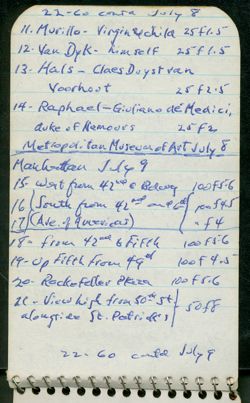 22-60 contd July 8
11. Murillo - Virgin & child 25 f1.5
12. Van Dyk - himself 25 f1.5
13. Hals - Claes Duyst van
Voorhout 25 f2.5
14. Raphael - Giuliano de' Medici,
duke of Nemours 25 f2
Metropolitan Museum of Art July 8
Manhattan July 9
15 - West from 42nd & Bdway 100 f5.6
16 South from 42nd on 6th 100 f4.5
17 (Ave. of Americas) " f4
18 - From 42nd & Fifth 100 f5.6
19 - Up Fifth from 49th 100 f4.5
20 - Rockefeller Plaza 100 f5.6
21 - View high from 50th St.
alongside St. Patrick's 50 f8
22-60 contd July 9